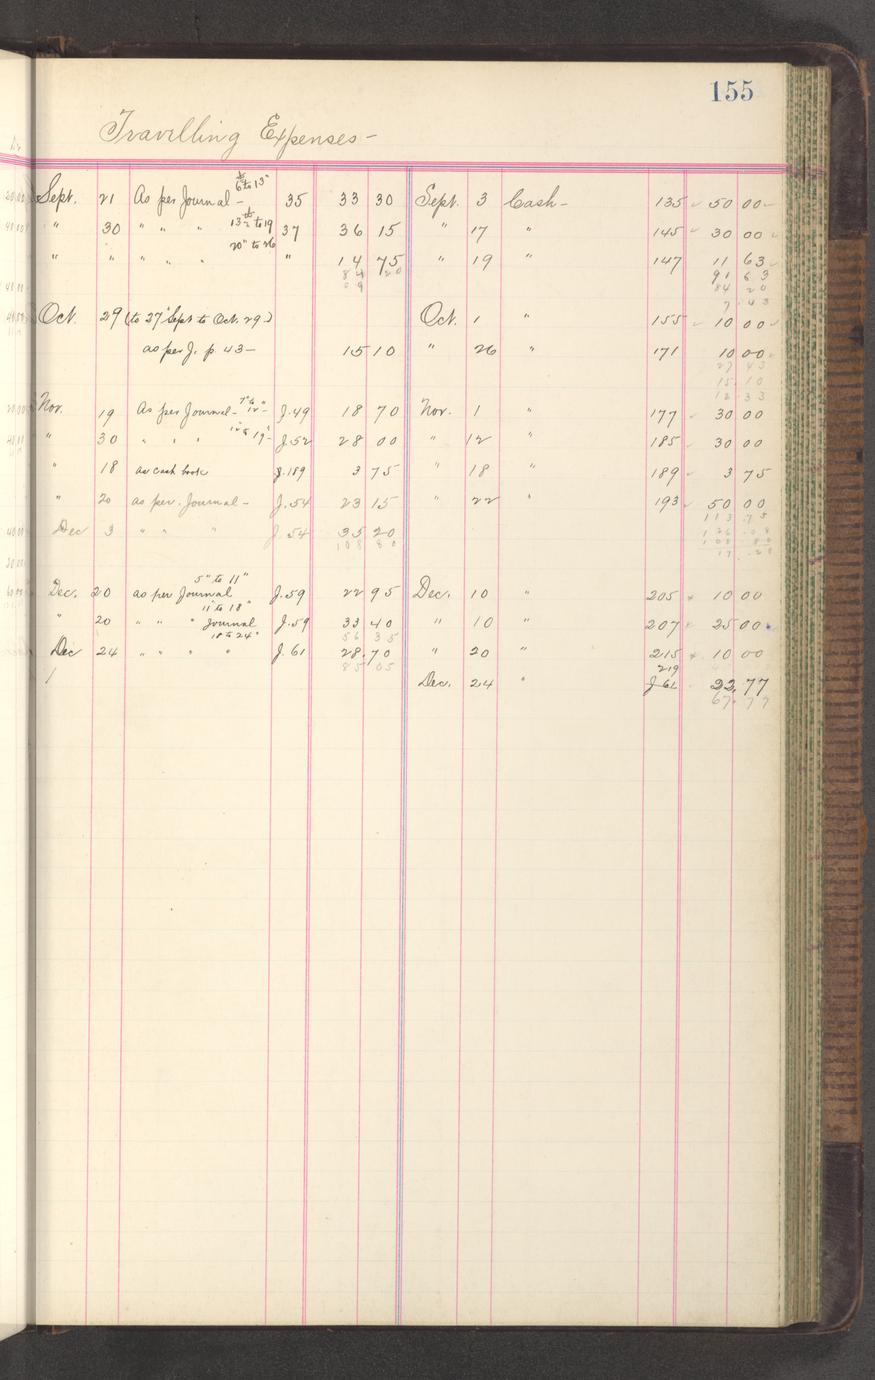 155
Travelling Expenses -
Sept. 21 As per Journal - 6th to 13" 35 33 30 Sept. 3 Cash - 135 50 00
" 30 " " " 13th to 19 37 36 15 " 17 " 145 30 00
" " " " " 20" to 26 " 14 75 " 19 " 147 11 63
84 20 91 63
84 20
7 43
Oct. 29 (to 27" Sept to Oct. 29 -) Oct. 1 " 155 10 00
as per J. p. 43 - 15 10 " 26 " 171 10 00
27 43
15 10
12 33
Nov. 19 As per Journal - 7th to 12" - J. 49 18 70 Nov. 1 " 177 30 00
" 30 " " " 12th 19" - J. 52 28 00 " 12 " 185 30 00
" 18 as cash book J. 189 3 75 " 18 " 189 3 75
" 20 as per Journal - J. 54 23 15 " 22 " 193 50 00
113 75
Dec 3 " " " J. 54 35 20 126 08
108 80 108 80
17 28
5" to 11"
Dec. 20 as per Journal J. 59 22 95 Dec. 10 " 205 10 00
11" to 18"
" 20 " " " Journal J. 59 33 40 " 10 " 207 25 00
18 to 24" 56 35
Dec 24 " " " " J. 61 28 70 " 20 " 215 10 00
85 05 219
Dec. 24 " J 61 22 77
67 77